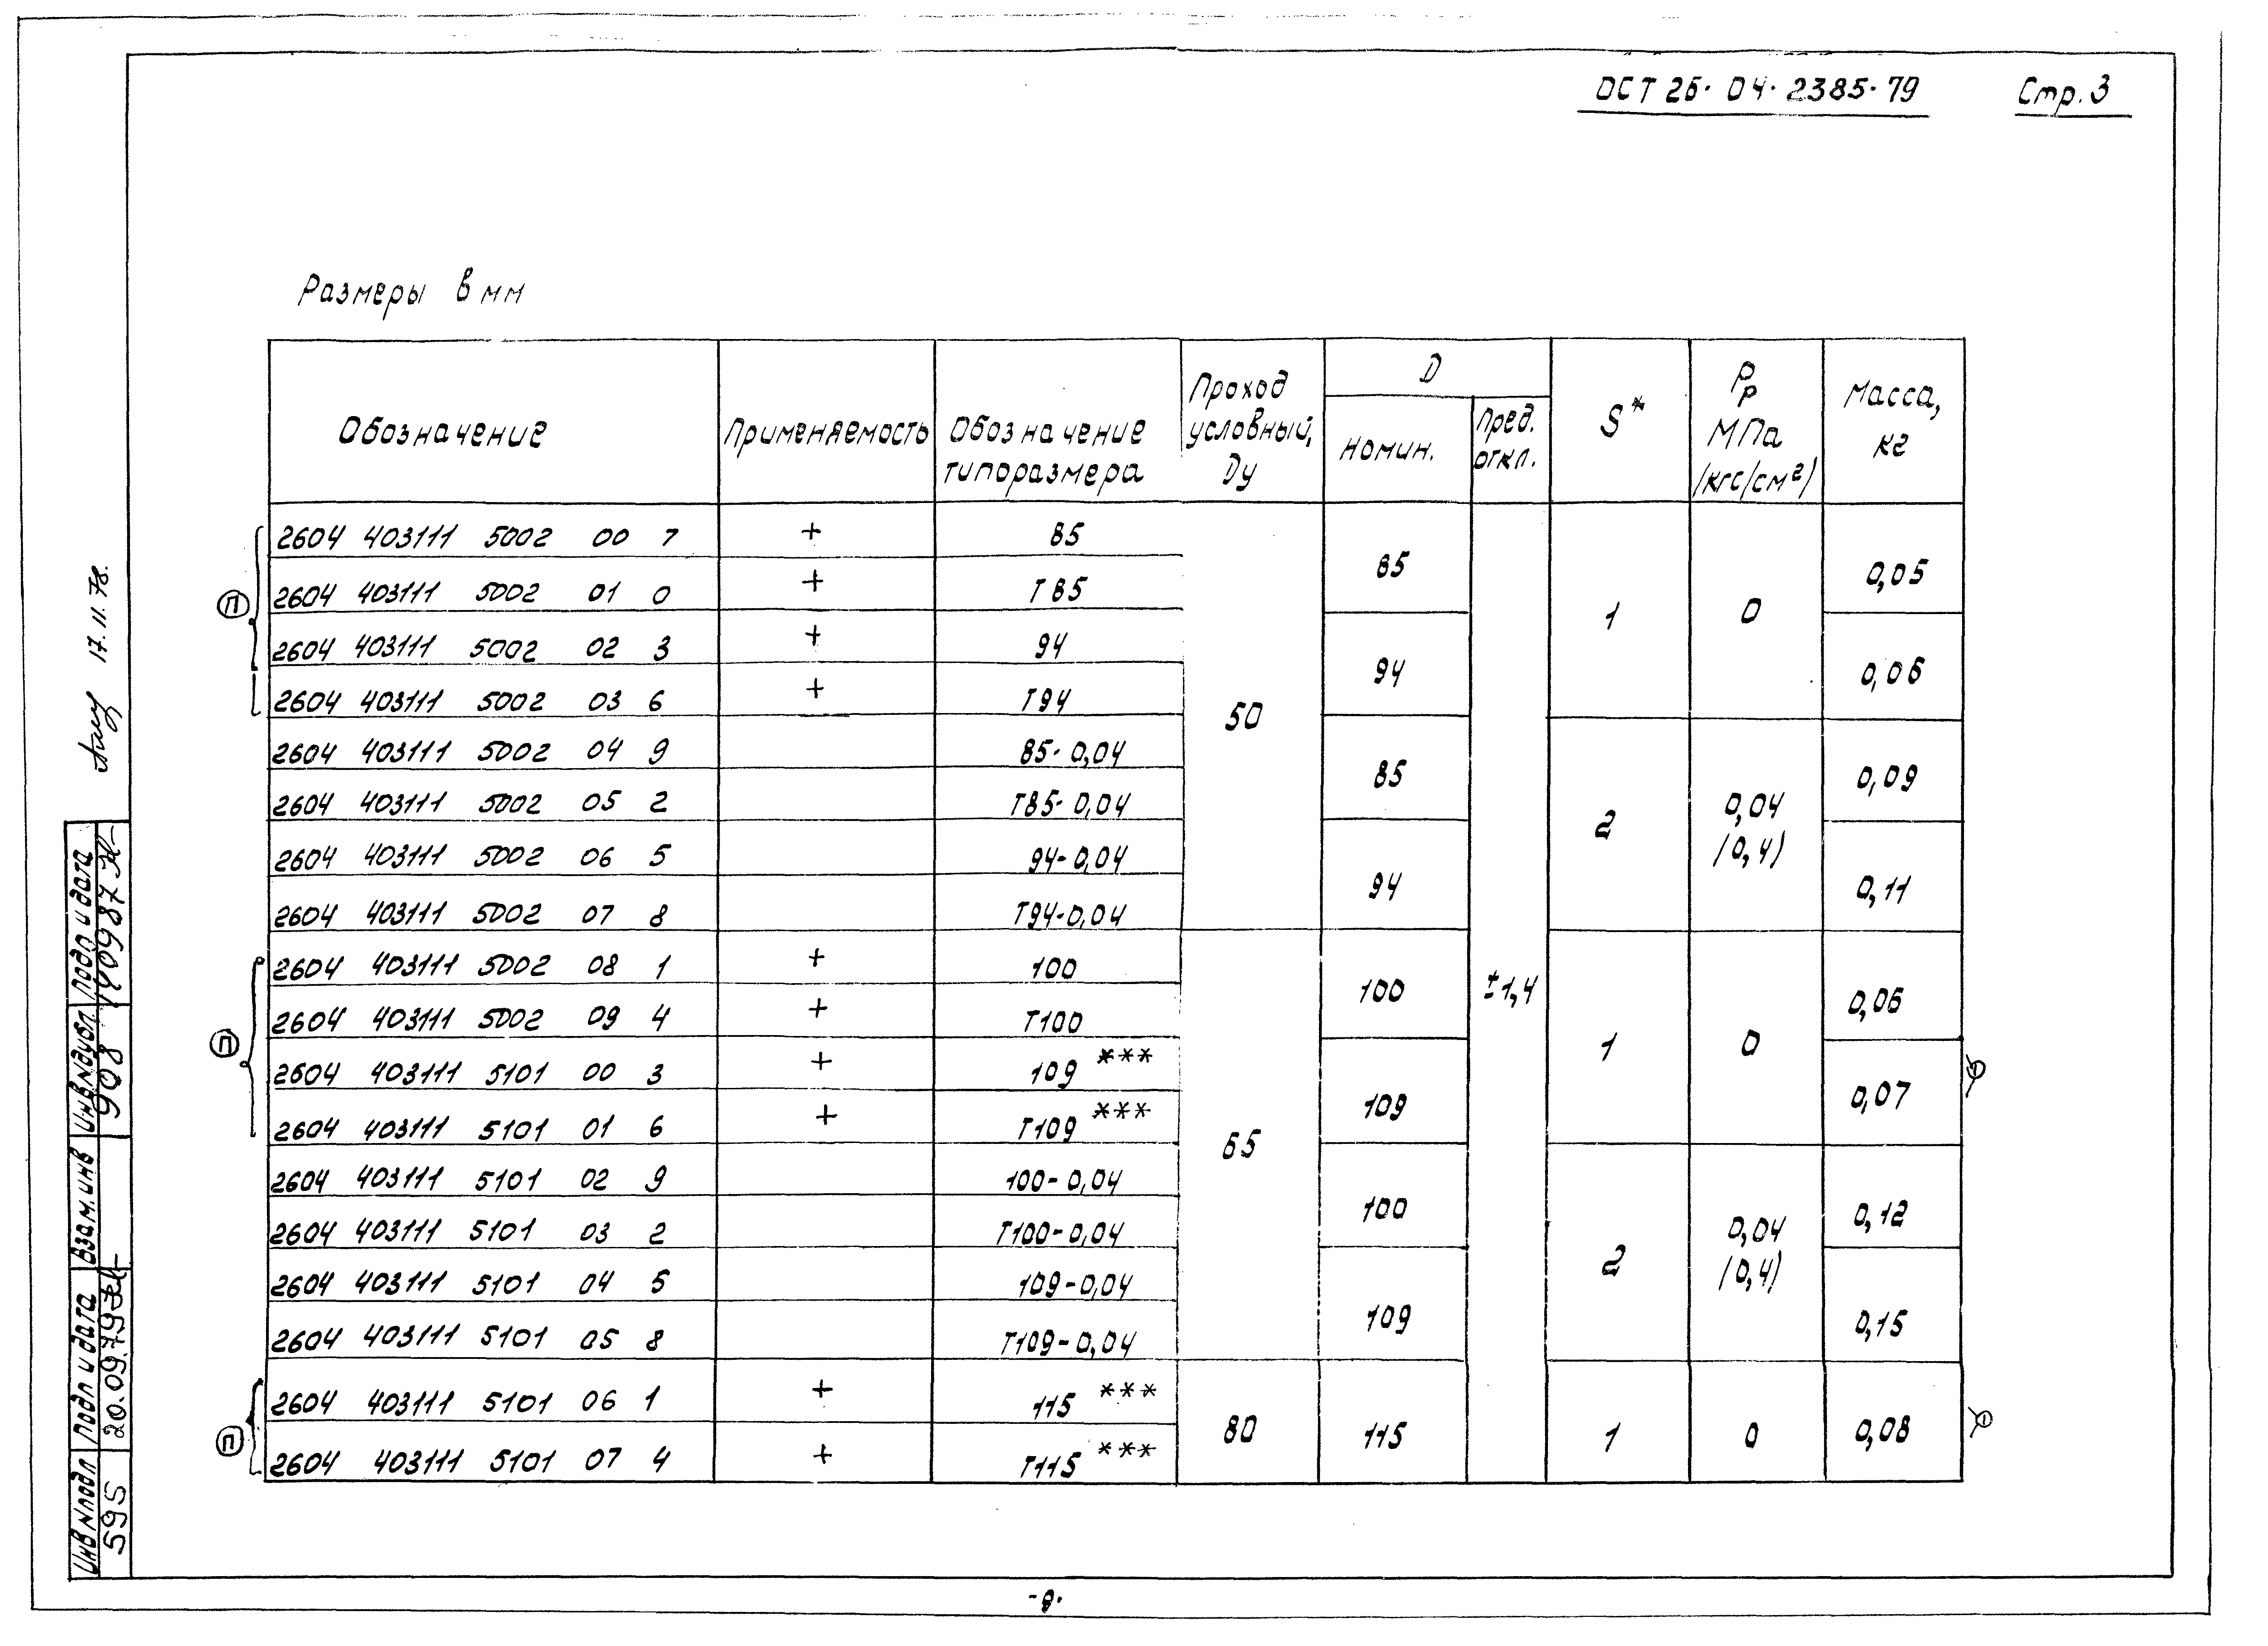 ОСТ 26·04·2385·79 Стр. 3
Размеры в мм
Обозначение Применяемость Обозначение типоразмера Проход условный, Dу D номин. Пред. откл. S* Pр МПа (кгс/см²) Масса, кг
2604 403111 5002 00 7 + 85 50 85 ±1,4 1 0 0,05
2604 403111 5002 01 0 + Т85
2604 403111 5002 02 3 + 94 94 0,06
2604 403111 5002 03 6 + Т94
2604 403111 5002 04 9 85-0,04 85 2 0,04 (0,4) 0,09
2604 403111 5002 05 2 Т85-0,04
2604 403111 5002 06 5 94-0,04 94 0,11
2604 403111 5002 07 8 Т94-0,04
2604 403111 5002 08 1 + 100 65 100 1 0 0,06
2604 403111 5002 09 4 + Т100
2604 403111 5101 00 3 + 109 *** 109 0,07
2604 403111 5101 01 6 + Т109 ***
2604 403111 5101 02 9 100-0,04 100 2 0,04 (0,4) 0,12
2604 403111 5101 03 2 Т100-0,04
2604 403111 5101 04 5 109-0,04 109 0,15
2604 403111 5101 05 8 Т109-0,04
2604 403111 5101 06 1 + 115 *** 80 115 1 0 0,08
2604 403111 5101 07 4 + Т115 ***
П
П
П
17.11.78.
Инв № подл 595
Подп и дата 20.09.79
Взам. инв
Инв № дубл 908
Подп и дата 140987